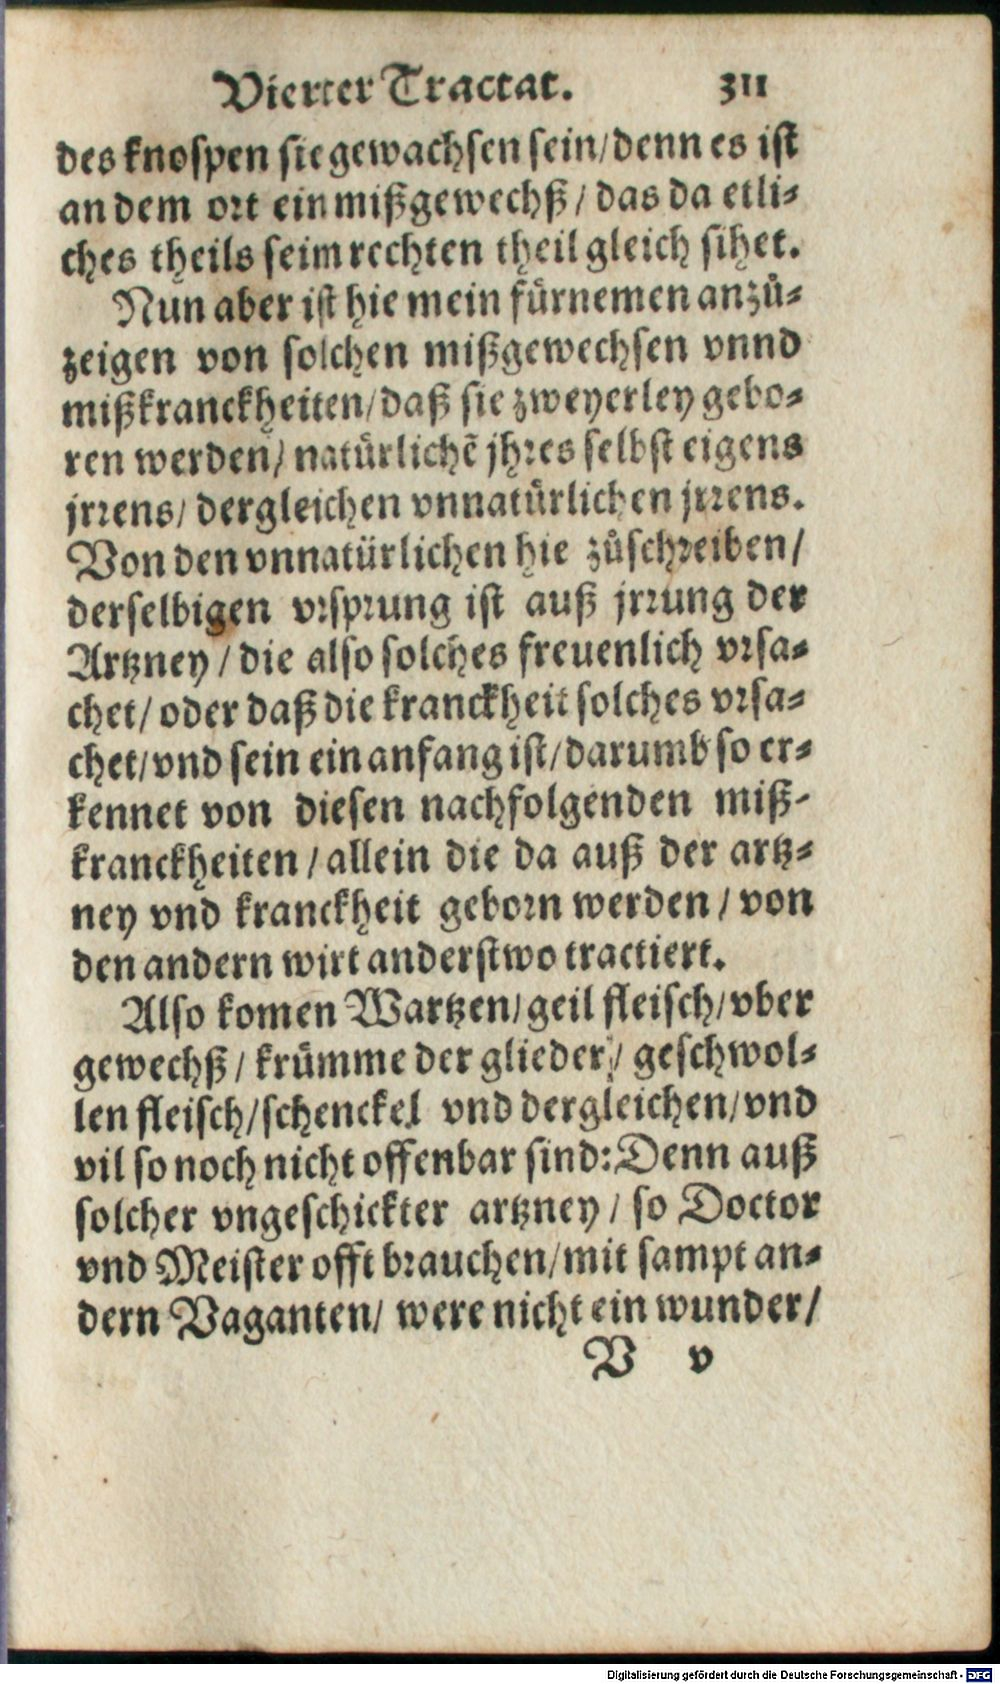 Vierter Tractat. 311
des knospen sie gewachsen sein/denn es ist
an dem ort ein mißgewechß/das da etli-
ches theils seim rechten theil gleich sihet.
Nun aber ist hie mein fürnemen anzů-
zeigen von solchen mißgewechsen vnnd
mißkranckheiten/daß sie zweyerley gebo-
ren werden/natürlichẽ jhres selbst eigens
jrrens/dergleichen vnnatürlichen jrrens.
Von den vnnatürlichen hie zůschreiben/
derselbigen vrsprung ist auß jrrung der
Artzney/die also solches freuenlich vrsa-
chet/oder daß die kranckheit solches vrsa-
chet/vnd sein ein anfang ist/darumb so er-
kennet von diesen nachfolgenden miß-
kranckheiten/allein die da auß der artz-
ney vnd kranckheit geborn werden/von
den andern wirt anderstwo tractiert.
Also komen Wartzen/geil fleisch/vber
gewechß/krümme der glieder/geschwol-
len fleisch/schenckel vnd dergleichen/vnd
vil so noch nicht offenbar sind: Denn auß
solcher vngeschickter artzney/so Doctor
vnd Meister offt brauchen/mit sampt an-
dern Vaganten/were nicht ein wunder/
V v
Digitalisierung gefördert durch die Deutsche Forschungsgemeinschaft - DFG